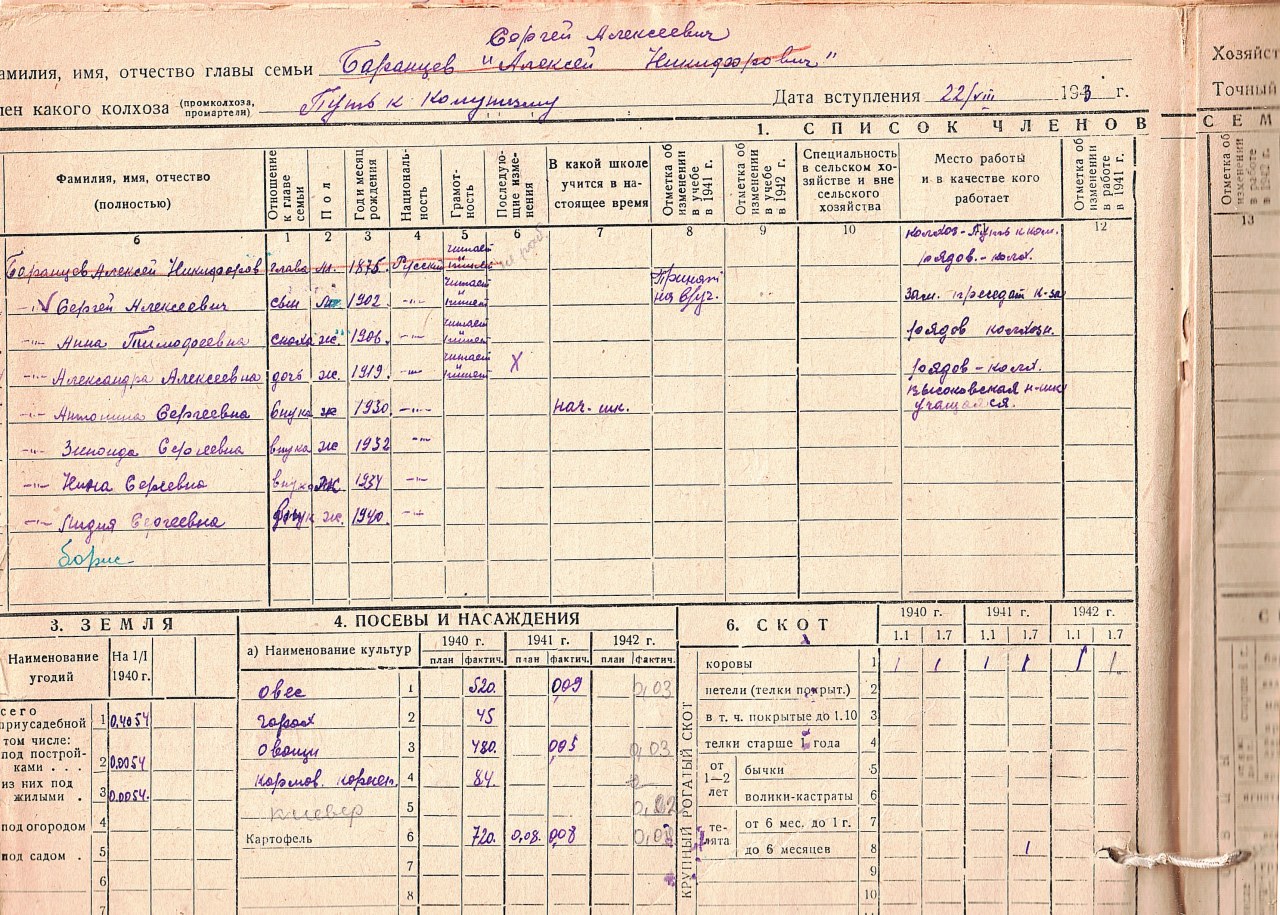 Сергей Алексеевич
амилия, имя, отчество главы семьи Баранцев "Алексей Никифорович"
лен какого колхоза (промколхоза, промартели) Путь к Комунизму Дата вступления 22/VIII 193 г.
Хозяйст
Точный
1. СПИСОК ЧЛЕНОВ
СЕМ
Фамилия, имя, отчество (полностью) Отношение к главе семьи Пол Годи месяц рождения Националь-ность Грамот-ность Последую-щие изме-нения В какой школе учится в на-стоящее время Отметка об изменении в учебе в 1941 г. Отметка об изменении в учебе в 1942 г. Специальность в сельском хо-зяйстве и вне сельского хозяйства Место работы и в качестве кого работает Отметка об изменении в работе в 1941 г. Отметка об изменении в работе в 1942 г.
б 1 2 3 4 5 6 7 8 9 10 12 13
Баранцев Алексей Никифоров глава м. 1875. Русский читает пишет колхоз-Путь к ком. рядов.-колх.
-"- Сергей Алексеевич сын м. 1902 -"- читает пишет Принят на вруч. зам. председат к-за
-"- Анна Тимофеевна сноха ж. 1906. -"- читает пишет рядов колхозн.
-"- Александра Алексеевна дочь ж. 1919. -"- читает пишет X рядов-колх.
-"- Антонина Сергеевна внука ж 1930. -"- нач. шк. Высоковская н-шк учащаяся.
-"- Зиноида Сергеевна внука ж 1932 -"-
-"- Нина Сергеевна внука ж 1934 -"-
-"- Лидия Сергеевна внук ж. 1940. -"-
Борис
3. ЗЕМЛЯ
Наименование угодий На 1/I 1940 г.
сего приусадебной 1 0,4054
том числе:
под построй-ками . . . 2 0,0054
из них под жилыми . 3 0.0054.
под огородом 4
под садом . 5
6
7
4. ПОСЕВЫ И НАСАЖДЕНИЯ
а) Наименование культур 1940 г. 1941 г. 1942 г.
план фактич. план фактич. план фактич.
овес 1 520. 009 0,03
горох 2 45
Овощи 3 480. 005 0,03
кормов. корнеп. 4 84.
клевер 5
Картофель 6 720. 0,08. 008
7
8
6. СКОТ
1940 г. 1941 г. 1942 г.
1.1 1.7 1.1 1.7 1.1 1.7
КРУПНЫЙ РОГАТЫЙ СКОТ
коровы 1 1 1 1 1 1 1
нетели (телки покрыт.) 2
в т. ч. покрытые до 1.10 3
телки старше 1 года 4
от 1—2 лет
бычки 5
волики-кастраты 6
те-лята
от 6 мес. до 1 г. 7
до 6 месяцев 8 1
9
10